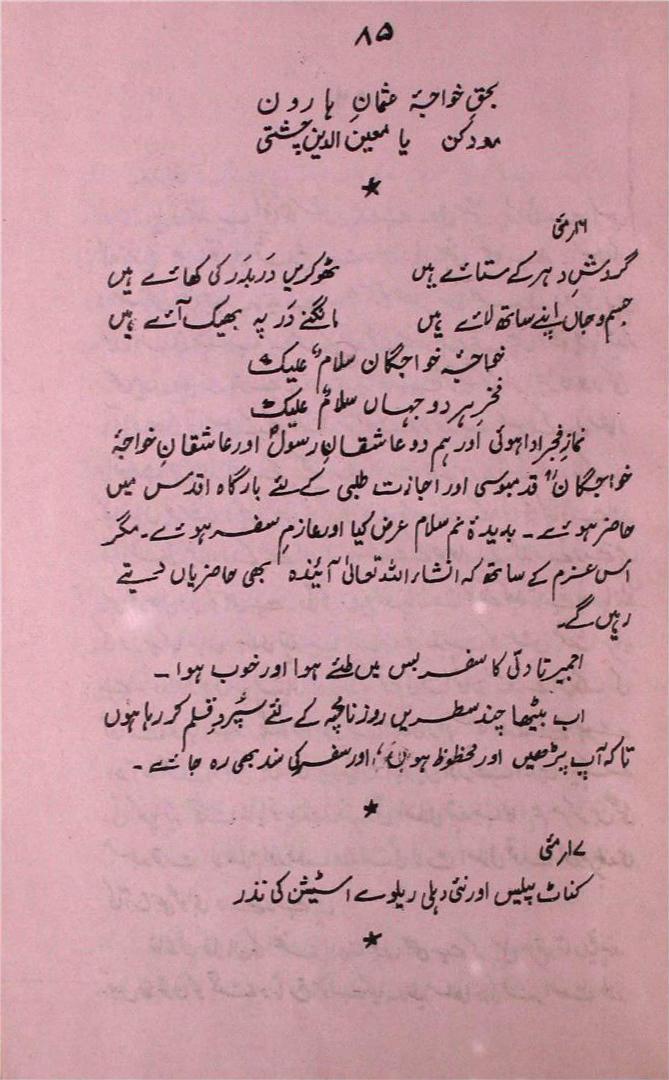 ۸۵
بحقِ خواجۂ عثمانِ ہارون
مدد کن یا معین الدین چشتی
*
۱۶ مئی
گردشِ دہر کے ستائے ہیں ٹھوکریں دَر بدَر کی کھائے ہیں
جسم و جاں اپنے ساتھ لائے ہیں مانگنے دَر پہ بھیک آئے ہیں
خواجۂ خواجگان سلامٌ علیک
فخرِ ہر دو جہاں سلامٌ علیک
نمازِ فجر ادا ہوئی اور ہم دو عاشقانِ رسولؐ اور عاشقانِ خواجۂ
خواجگانؒ قدمبوسی اور اجازت طلبی کے لئے بارگاہ اقدس میں
حاضر ہوئے۔ بدیدۂ نم سلام عرض کیا اور عازمِ سفر ہوئے۔ مگر
اس عزم کے ساتھ کہ انشاء اللہ تعالیٰ آئندہ بھی حاضریاں دیتے
رہیں گے۔
اجمیر تا دلّی کا سفر بس میں طئے ہوا اور خوب ہوا۔
اب بیٹھا چند سطریں روزنامچہ کے لئے سپُردِ قلم کر رہا ہوں
تاکہ آپ پڑھیں اور محظوظ ہوں، اور سفر کی سند بھی رہ جائے۔
*
۱۷ مئی
کناٹ پیلس اور نئی دہلی ریلوے اسٹیشن کی نذر
*